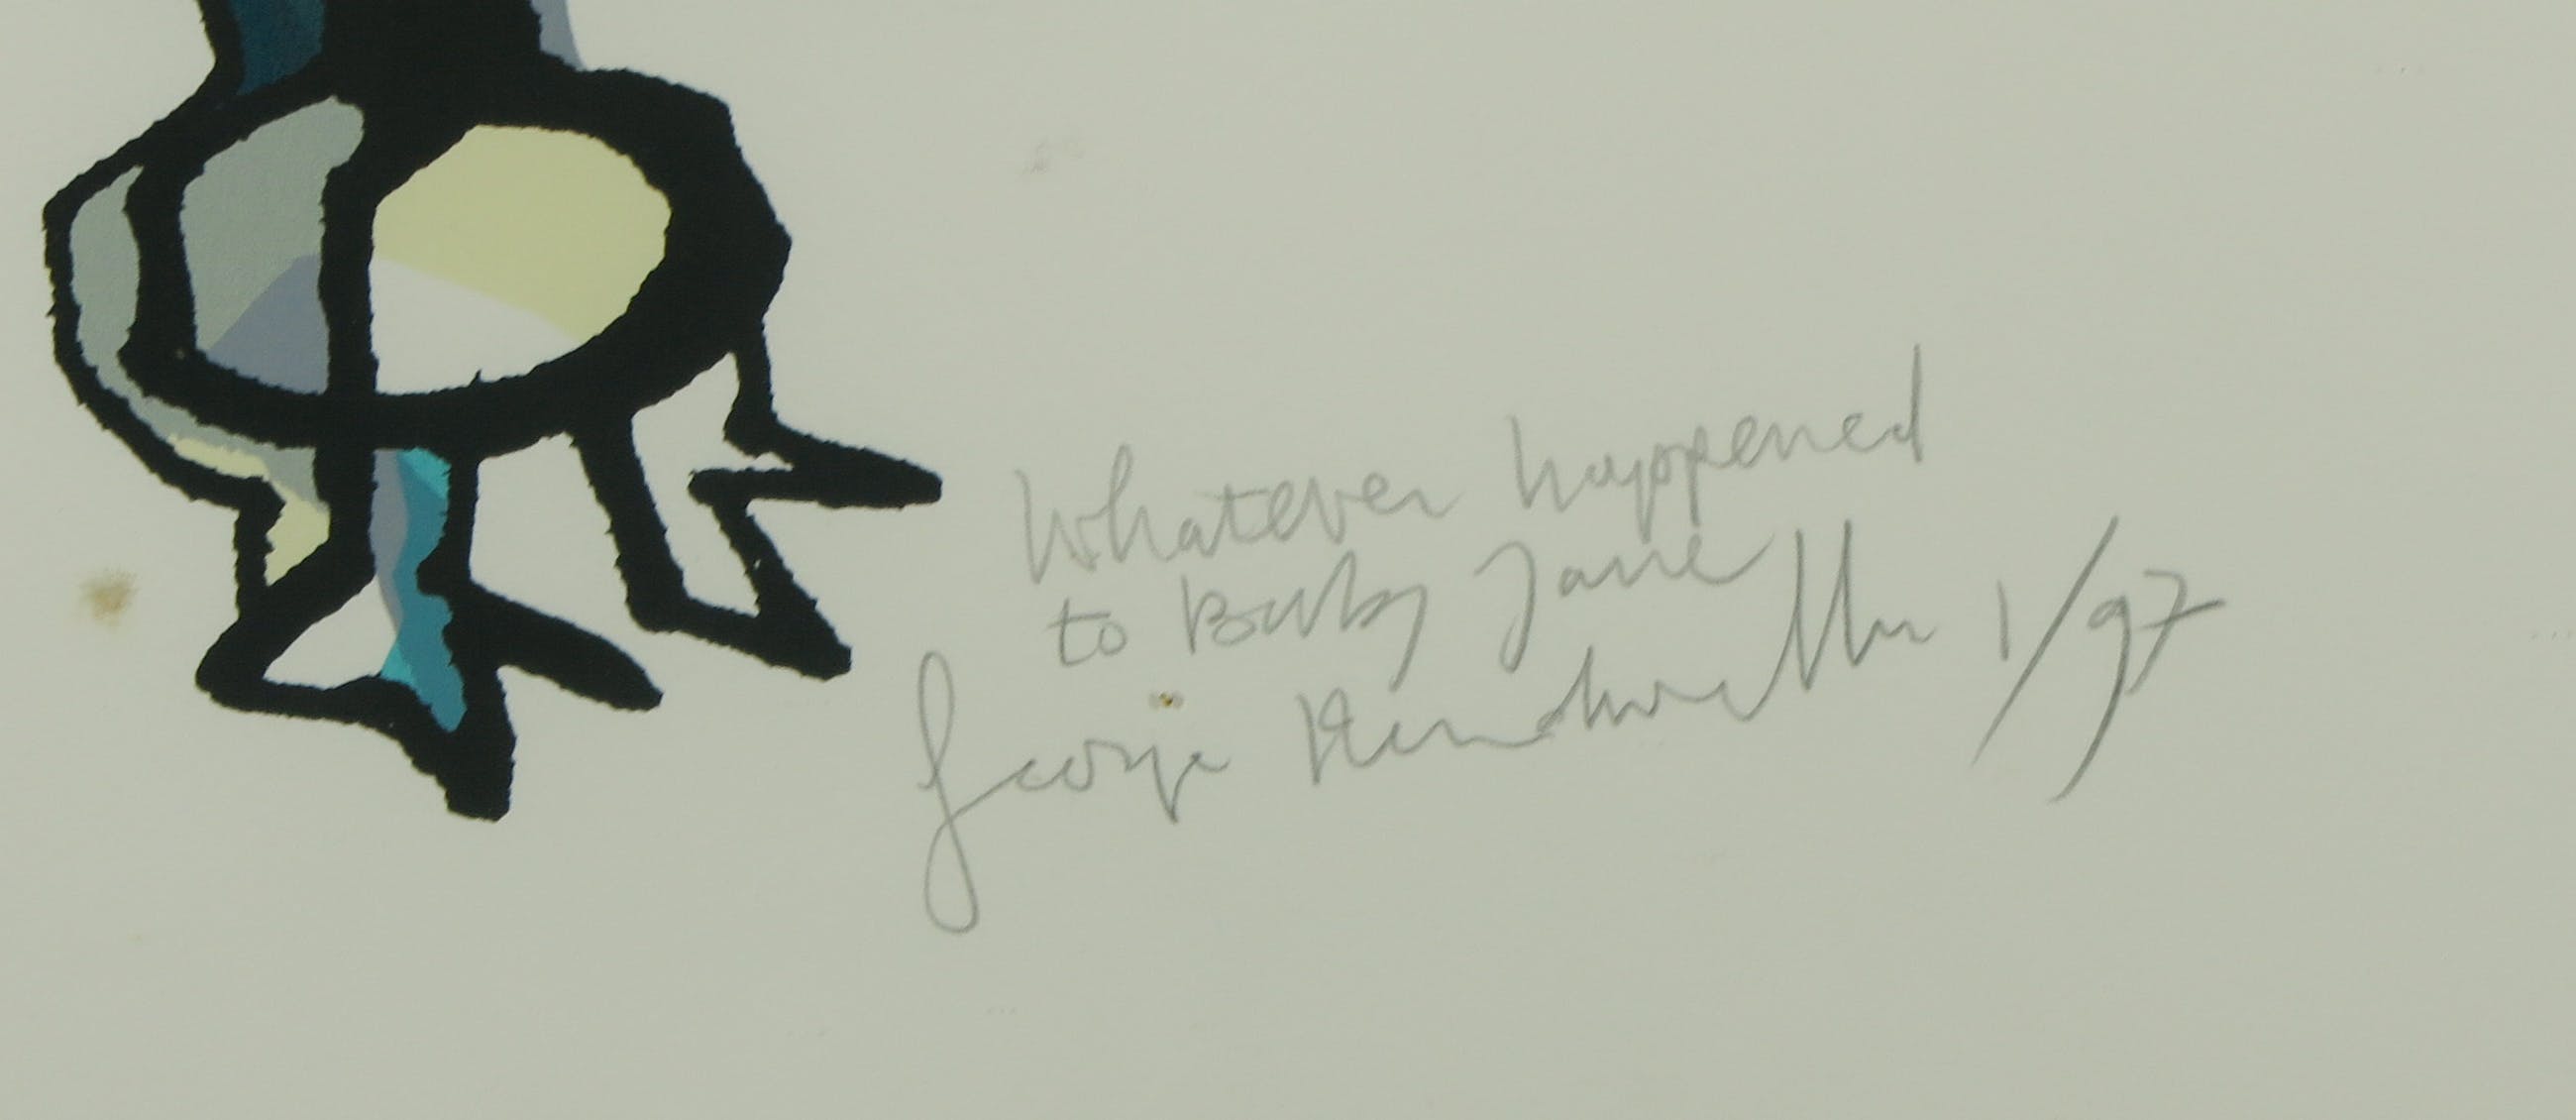 Whatever happened
to Baby Jane
George 1/97